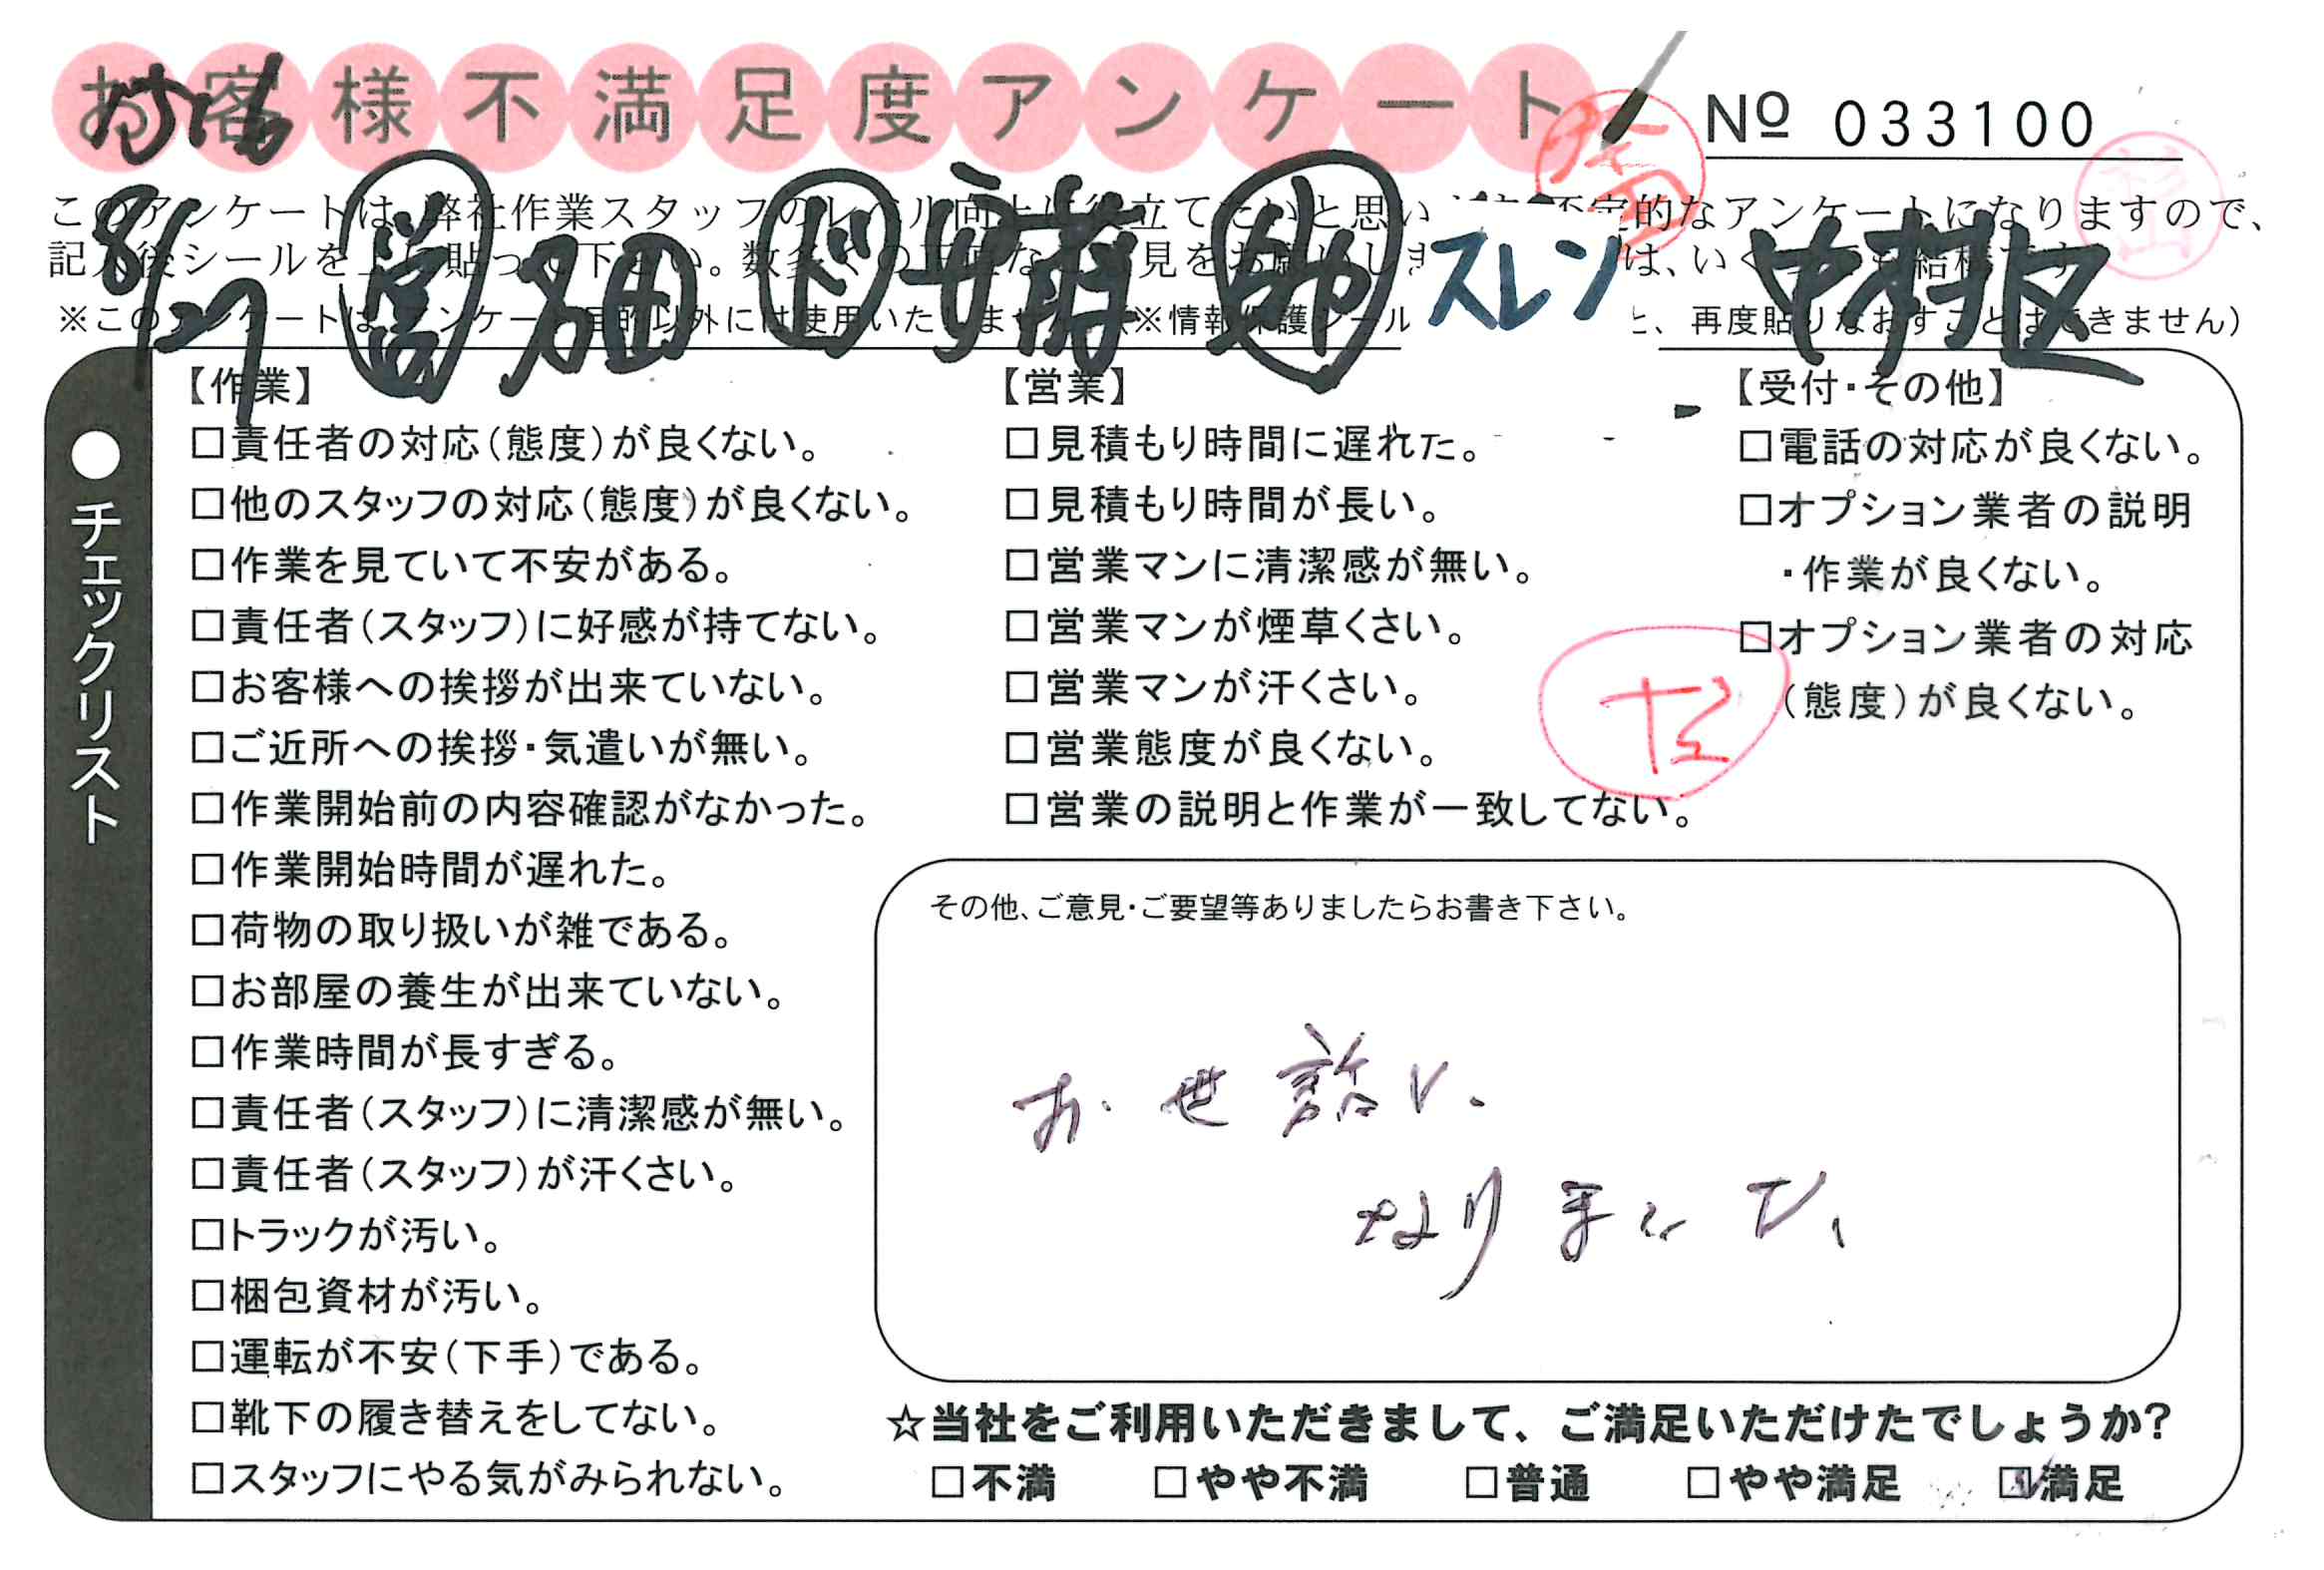 お客様不満足度アンケート
№ 033100
このアンケートは、弊社作業スタッフのレベル向上に役立てたいと思い 的なアンケートになりますので、
記入後シールを上に貼って下さい。数多くの正直なご意見をお願いしま は、いくつでも結構です
※このアンケートはアンケート目的以外には使用いたしません (※情報保護シール と、再度貼りなおすことはできません)
8/27 営 ド 安藤 助 スレン 中村区
●チェックリスト
【作業】
□責任者の対応(態度)が良くない。
□他のスタッフの対応(態度)が良くない。
□作業を見ていて不安がある。
□責任者(スタッフ)に好感が持てない。
□お客様への挨拶が出来ていない。
□ご近所への挨拶・気遣いが無い。
□作業開始前の内容確認がなかった。
□作業開始時間が遅れた。
□荷物の取り扱いが雑である。
□お部屋の養生が出来ていない。
□作業時間が長すぎる。
□責任者(スタッフ)に清潔感が無い。
□責任者(スタッフ)が汗くさい。
□トラックが汚い。
□梱包資材が汚い。
□運転が不安(下手)である。
□靴下の履き替えをしてない。
□スタッフにやる気がみられない。
【営業】
□見積もり時間に遅れた。
□見積もり時間が長い。
□営業マンに清潔感が無い。
□営業マンが煙草くさい。
□営業マンが汗くさい。
□営業態度が良くない。
□営業の説明と作業が一致してない。
【受付・その他】
□電話の対応が良くない。
□オプション業者の説明
・作業が良くない。
□オプション業者の対応
(態度)が良くない。
その他、ご意見・ご要望等ありましたらお書き下さい。
お世話に
なりました
☆当社をご利用いただきまして、ご満足いただけたでしょうか?
□不満 □やや不満 □普通 □やや満足 ☑満足